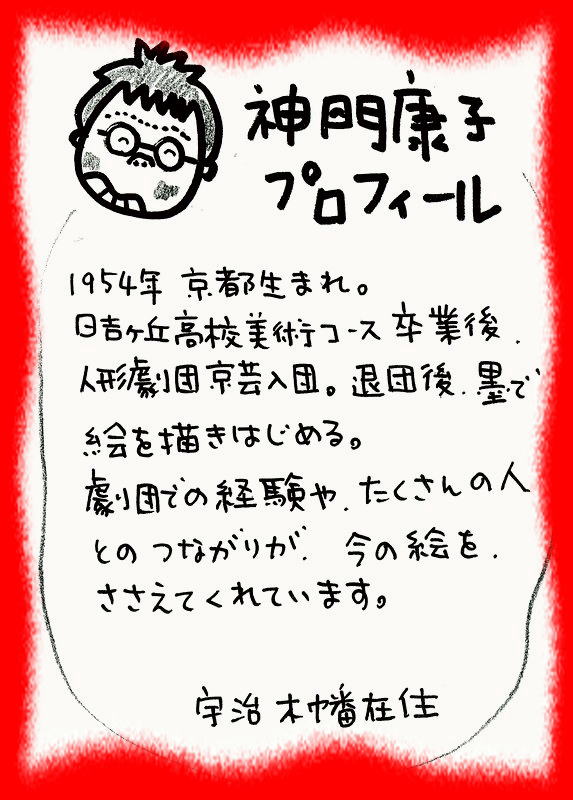 神門康子
プロフィール
1954年 京都生まれ。
日吉ヶ丘高校美術コース 卒業後、
人形劇団京芸入団。退団後、墨で
絵を描きはじめる。
劇団での経験や、たくさんの人
とのつながりが、今の絵を、
ささえてくれています。
宇治 木幡在住